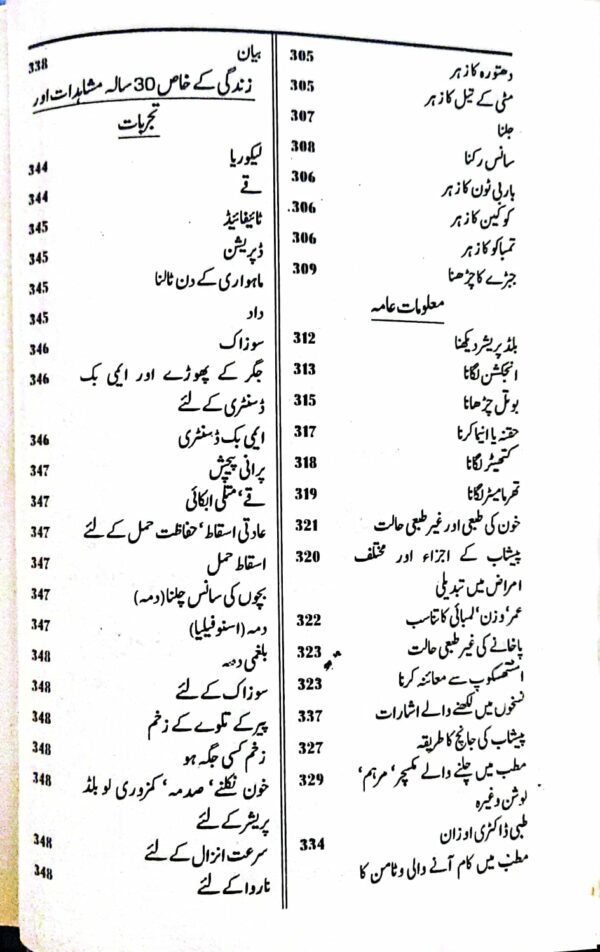 دھتورہ کا زہر 305
مٹی کے تیل کا زہر 305
جلنا 307
سانس رکنا 308
باربی ٹون کا زہر 306
کوکین کا زہر 306
تمباکو کا زہر 306
جبڑے کا چڑھنا 309
معلومات عامہ
بلڈ پریشر دیکھنا 312
انجکشن لگانا 313
بوتل چڑھانا 315
حقنہ یا انیما کرنا 317
کتھیٹر لگانا 318
تھرمامیٹر لگانا 319
خون کی طبعی اور غیر طبعی حالت 321
پیشاب کے اجزاء اور مختلف 320
امراض میں تبدیلی
عمر، وزن، لمبائی کا تناسب 322
پاخانے کی غیر طبعی حالت 323
اسٹتھسکوپ سے معائنہ کرنا 323
نسخوں میں لکھنے والے اشارات 337
پیشاب کی جانچ کا طریقہ 327
مطب میں چلنے والے مکسچر، مرہم، 329
لوشن وغیرہ
طبی ڈاکٹری اوزان 334
مطب میں کام آنے والی وٹامن کا
بیان 338
زندگی کے خاص 30 سالہ مشاہدات اور
تجربات
لیکوریا 344
قے 344
ٹائیفائیڈ 345
ڈپریشن 345
ماہواری کے دن ٹالنا 345
داد 345
سوزاک 346
جگر کے پھوڑے اور ایمی بک 346
ڈسنٹری کے لئے
ایمی بک ڈسنٹری 346
پرانی پیچش 347
قے، متلی ابکائی 347
عادتی اسقاط، حفاظت حمل کے لئے 347
اسقاط حمل 347
بچوں کی سانس چلنا (دمہ) 347
دمہ (اسنوفیلیا) 347
بلغمی دمہ 348
سوزاک کے لئے 348
پیر کے تلوے کے زخم 348
زخم کسی جگہ ہو 348
خون نکلنے، صدمہ، کمزوری لو بلڈ 348
پریشر کے لئے
سرعت انزال کے لئے 348
ناروا کے لئے 348